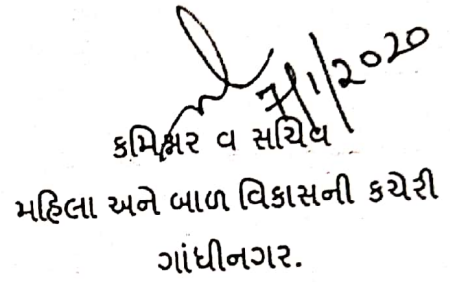 7/1/2020
કમિશ્નર વ સચિવ
મહિલા અને બાળ વિકાસની કચેરી
ગાંધીનગર.